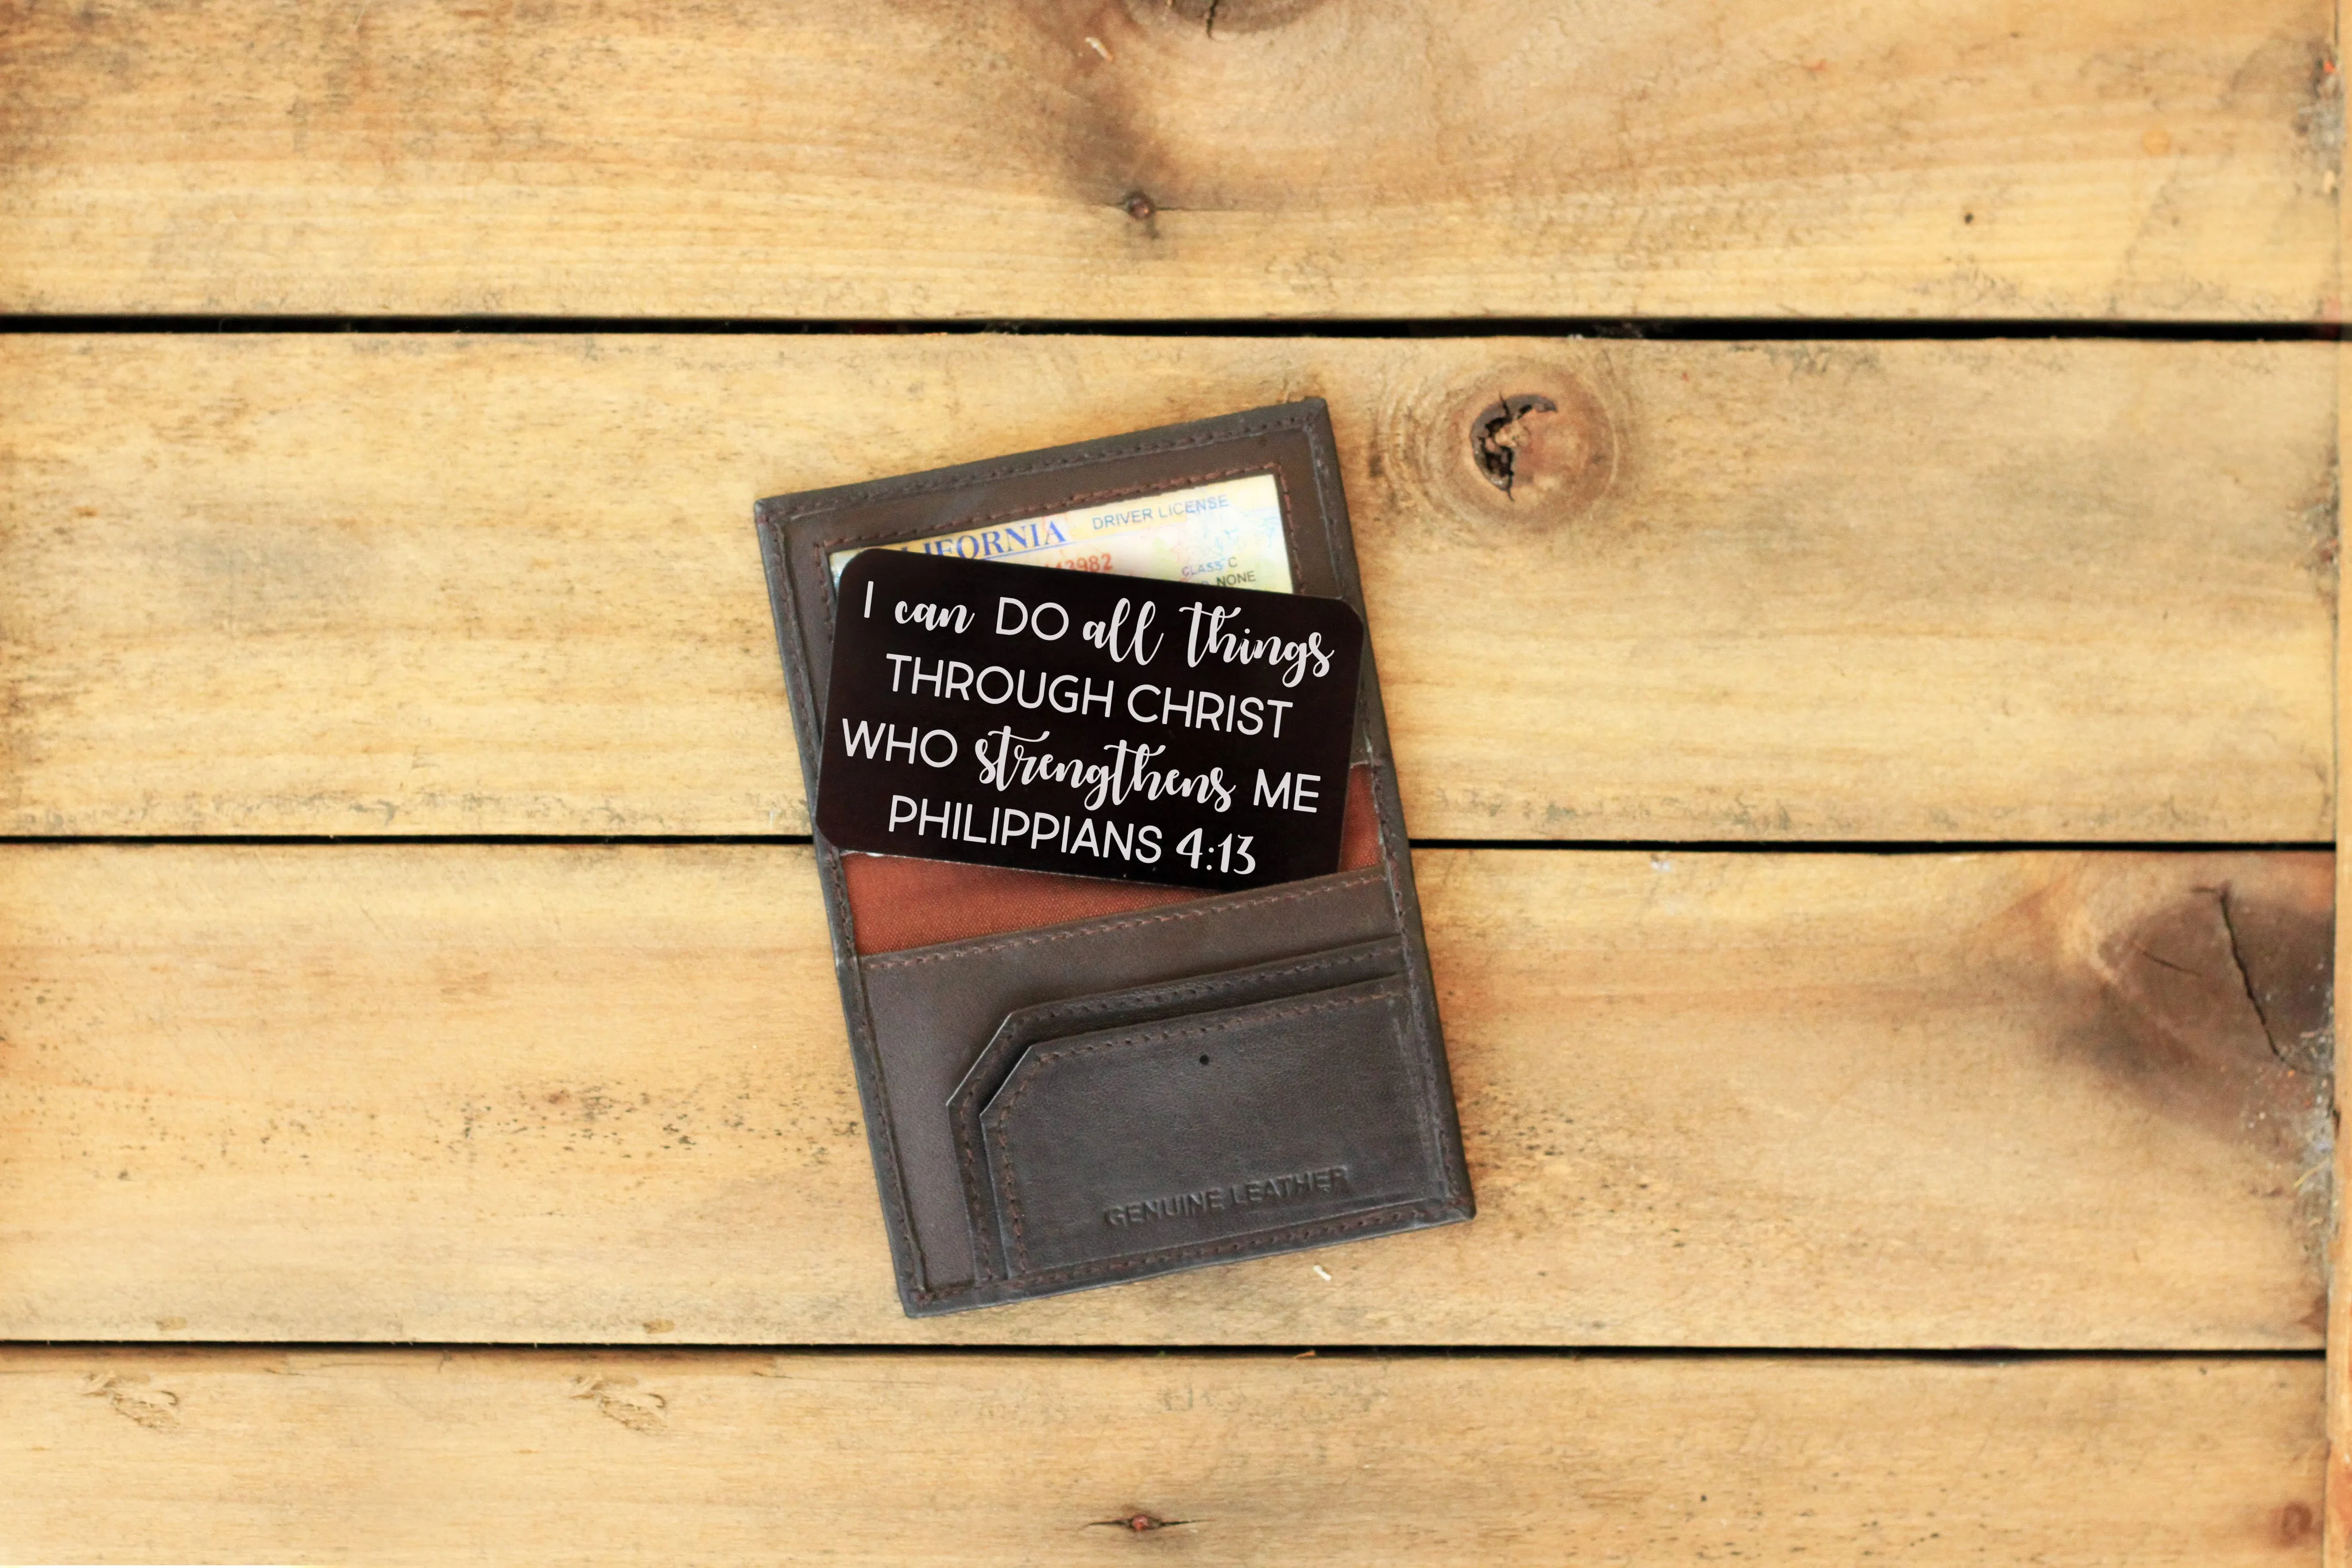 DRIVER LICENSE
CLASS C
NONE
I can DO all things
THROUGH CHRIST
WHO strengthens ME
PHILIPPIANS 4:13
GENUINE LEATHER